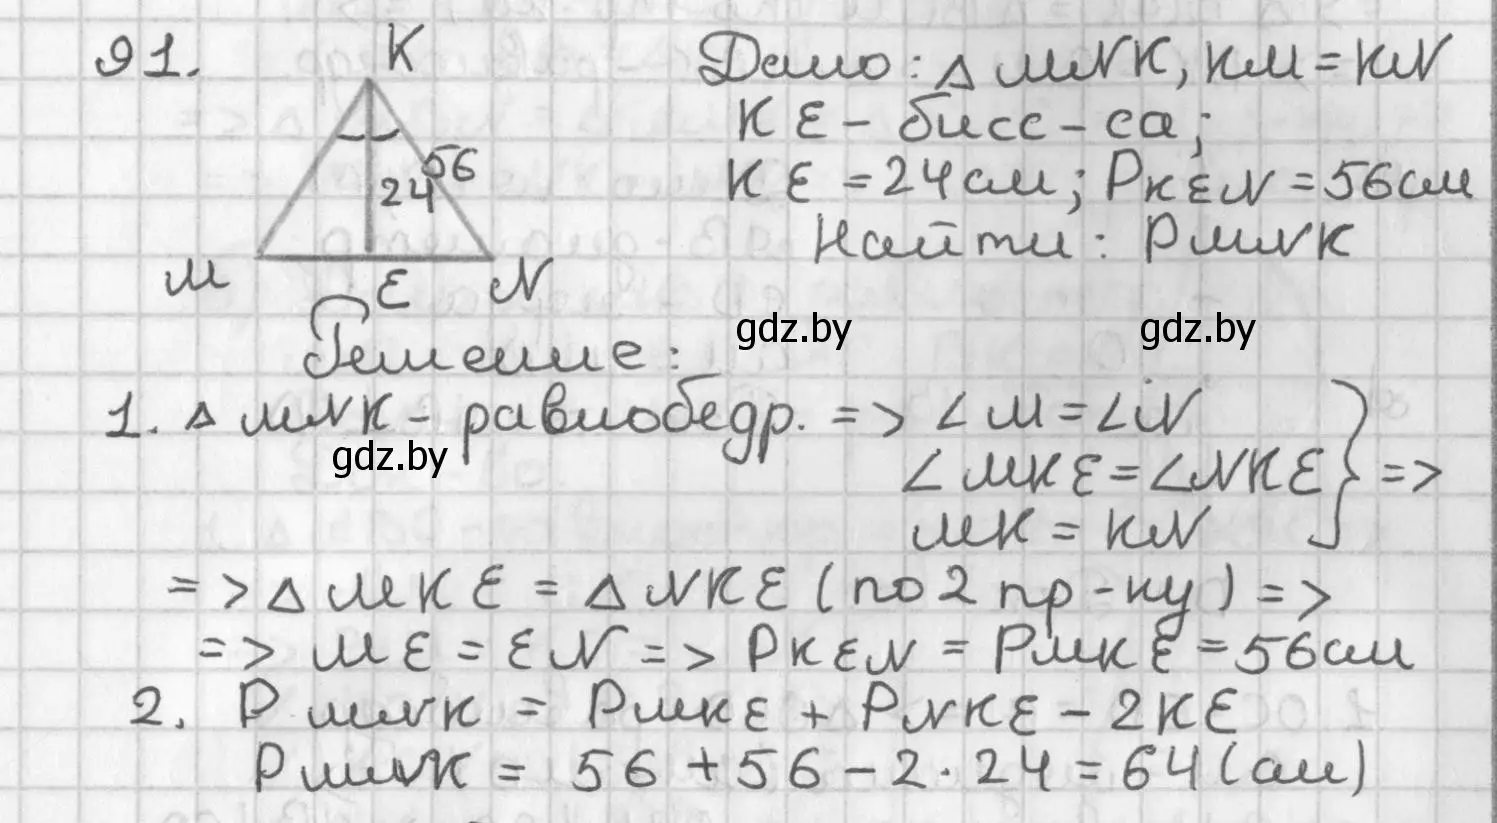 91.
K
56
24
M
E
N
Дано: △ MNK, KM = KN
KE - бисс-са;
KE = 24 см; PKEN = 56 см
Найти: PMNK
gdz.by
gdz.by
Решение:
1. △ MNK - равнобедр. => ∠M = ∠N
gdz.by
∠MKE = ∠NKE } =>
MK = KN
=> △ MKE = △ NKE (по 2 пр-ку) =>
=> ME = EN => PKEN = PMKE = 56 см
2. PMNK = PMKE + PNKE - 2KE
PMNK = 56 + 56 - 2 · 24 = 64 (см)